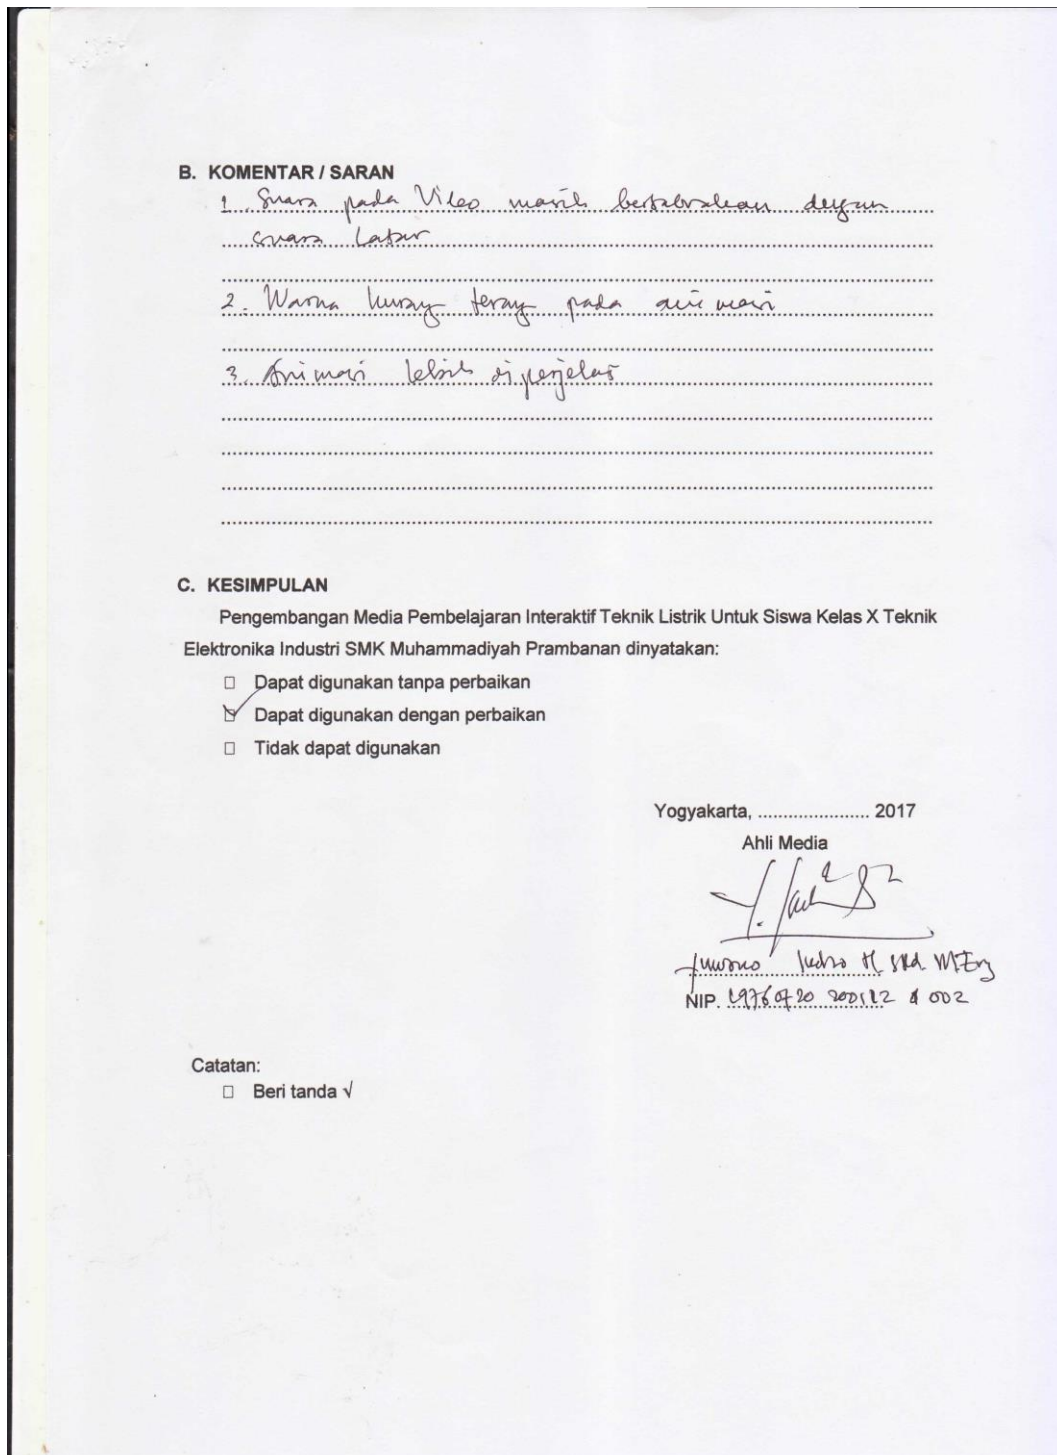 B. KOMENTAR / SARAN
1. Suara pada Video masih bertabrakan dengan
suara latar
2. Warna kurang terang pada animasi
3. Animasi lebih diperjelas
C. KESIMPULAN
Pengembangan Media Pembelajaran Interaktif Teknik Listrik Untuk Siswa Kelas X Teknik
Elektronika Industri SMK Muhammadiyah Prambanan dinyatakan:
Dapat digunakan tanpa perbaikan
Dapat digunakan dengan perbaikan
Tidak dapat digunakan
Yogyakarta, ...................... 2017
Ahli Media
Indra H M.Eng
NIP. 19760720 200112 1 002
Catatan:
Beri tanda √